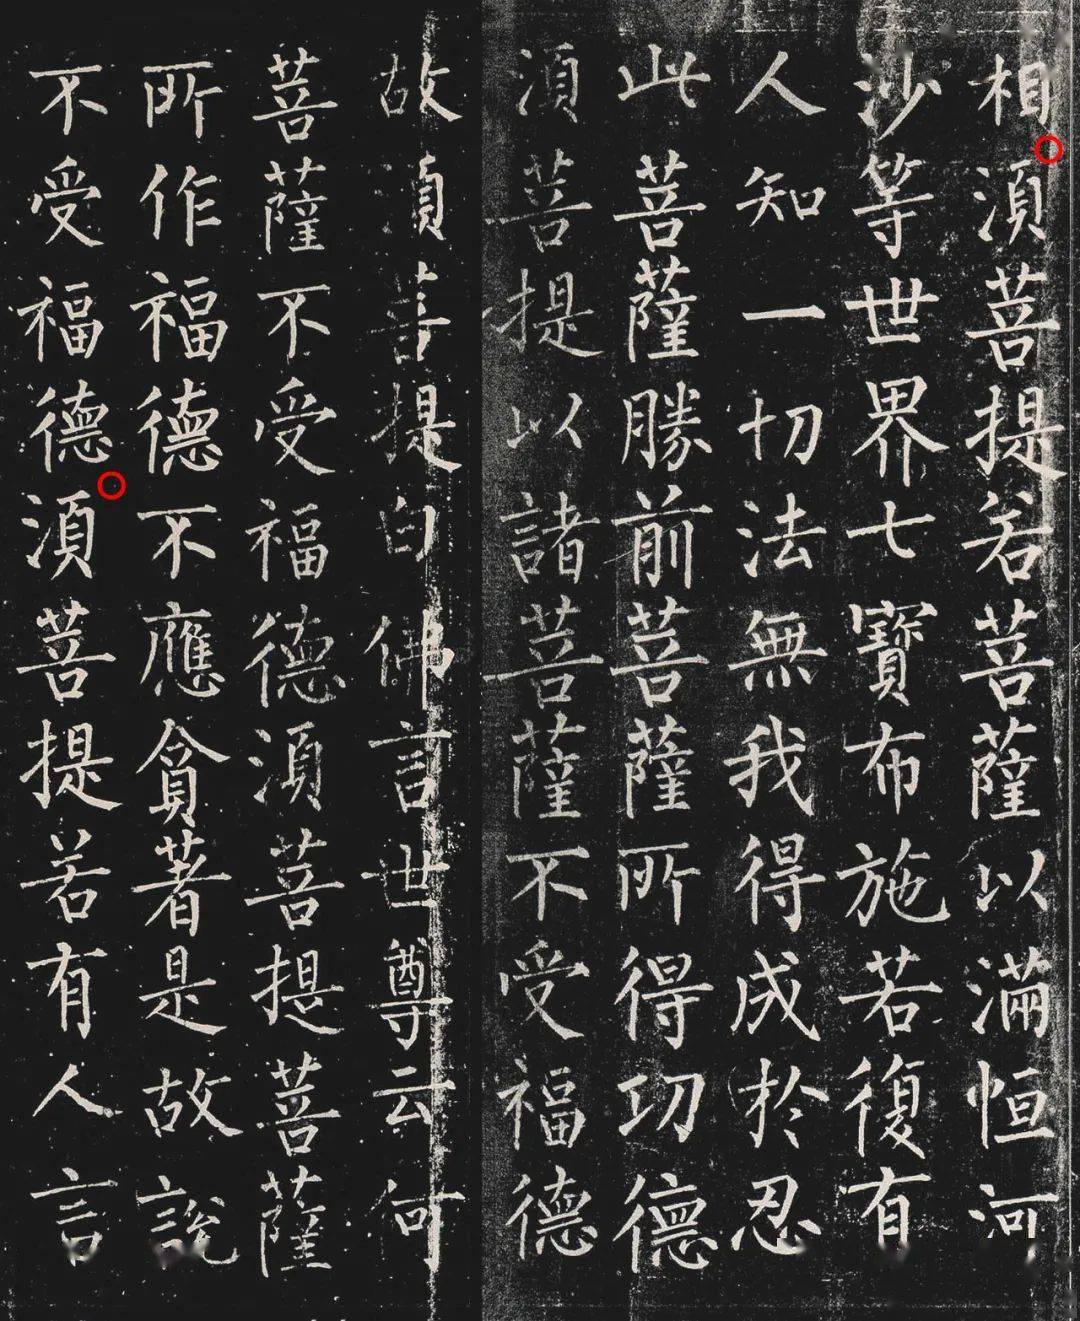 相須菩提若菩薩以滿恒河
沙等世界七寶布施若復有
人知一切法無我得成於忍
此菩薩勝前菩薩所得功德
須菩提以諸菩薩不受福德
故須菩提白佛言世尊云何
菩薩不受福德須菩提菩薩
所作福德不應貪著是故說
不受福德須菩提若有人言